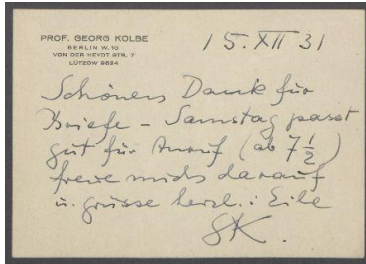 PROF. GEORG KOLBE
BERLIN W. 10
VON DER HEYDT STR. 7
LÜTZOW 9624
15. XII 31
Schönen Dank für
Briefe – Samstag passt
gut für Anruf (ab 7 1/2)
freue mich darauf
u. grüsse herzl. i. Eile
GK.